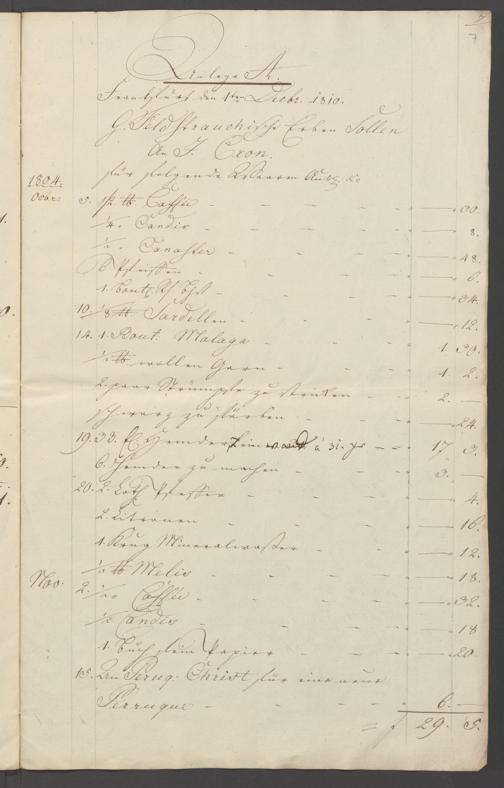 7
Anlage A.
Frankfurt den 1ten Decbr. 1810.
G. Feldstrauchische Erben Sollen
An J. Cron.
für folgende Waaren
1804.
Octbr.
3. 1/2 ℔ Caffee - - - 30.
1/4 - Candis - - - 8.
1/2 - Canaster - - - 48.
6 Pfeiffen - - - 6.
1. Bout. - - - 34.
10. 1/8 ℔ Sardellen - - - 12.
14. 1. Bout. Malaga - - - 1. 30.
1/2 ℔ wollen Garn - - - 1. 2.
2. paar Strümpfe zu stricken - - 2. —
schwarz zu färben - - - 24.
19. 33. Hemder Leinwand à 31. - - 17 3.
6. Hemder zu machen - - - 3. —
20. 2. Loth Pfeffer - - - 4.
2. Citronen - - - 16.
1. Krug Mineralwasser - - - 12.
1/2 ℔ Melis - - - 18.
Nov.
2. 1/2 - Caffee - - - 32.
1/2 Candis - - - 18
1. Buch fein Papier - - - 20.
15. Dem Peruq. Christ für eine neue
Perruque - - - 6. —
= f 29. 5.